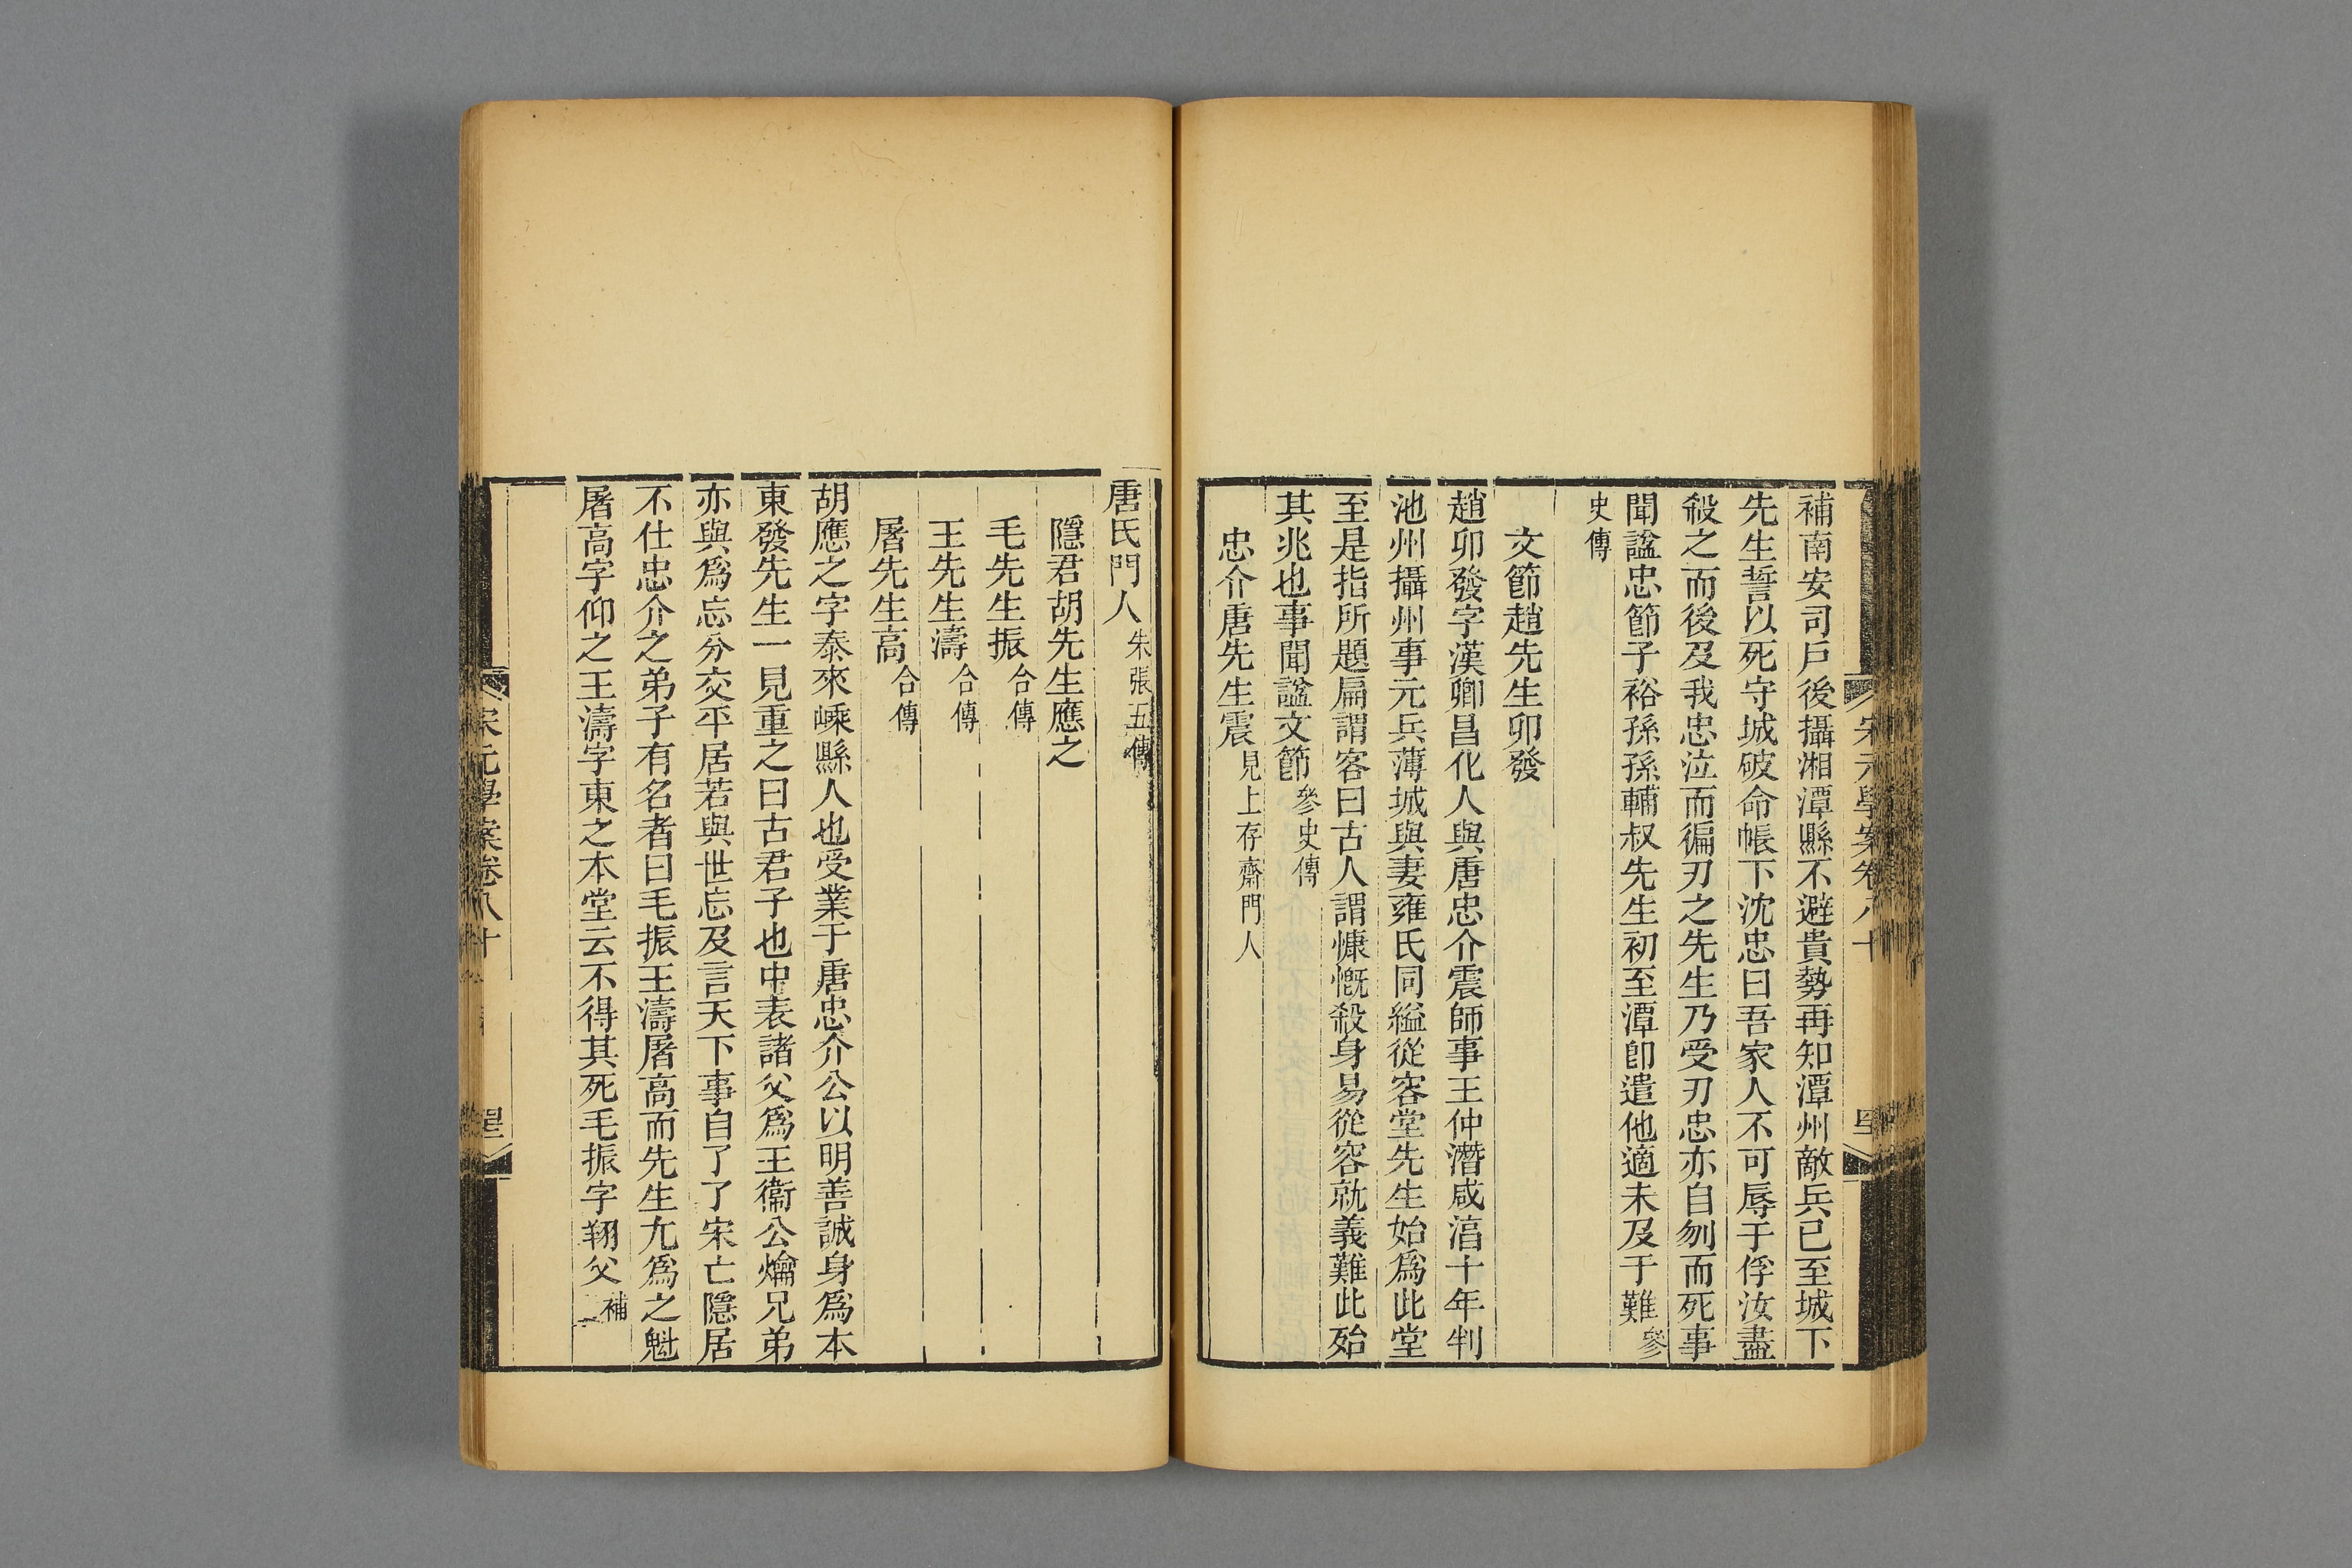 補南安司戶後攝湘潭縣不避貴勢再知潭州敵兵已至城下
先生誓以死守城破命帳下沈忠曰吾家人不可辱于俘汝盡
殺之而後及我忠泣而徧刃之先生乃受刃忠亦自刎而死事
聞諡忠節子裕孫孫輔叔先生初至潭卽遣他適未及于難參
史傳
文節趙先生卯發
趙卯發字漢卿昌化人與唐忠介震師事王仲潛咸湻十年判
池州攝州事元兵薄城與妻雍氏同縊從容堂先生始爲此堂
至是指所題扁謂客曰古人謂慷慨殺身易從容就義難此殆
其兆也事聞諡文節參史傳
忠介唐先生震見上存齋門人
唐氏門人朱張五傳
隱君胡先生應之
毛先生振合傳
王先生濤合傳
屠先生高合傳
胡應之字泰來嵊縣人也受業于唐忠介公以明善誠身爲本
東發先生一見重之曰古君子也中表諸父爲王衞公爚兄弟
亦與爲忘分交平居若與世忘及言天下事自了了宋亡隱居
不仕忠介之弟子有名者曰毛振王濤屠高而先生尤爲之魁
屠高字仰之王濤字東之本堂云不得其死毛振字翔父補
宋元學案卷八十